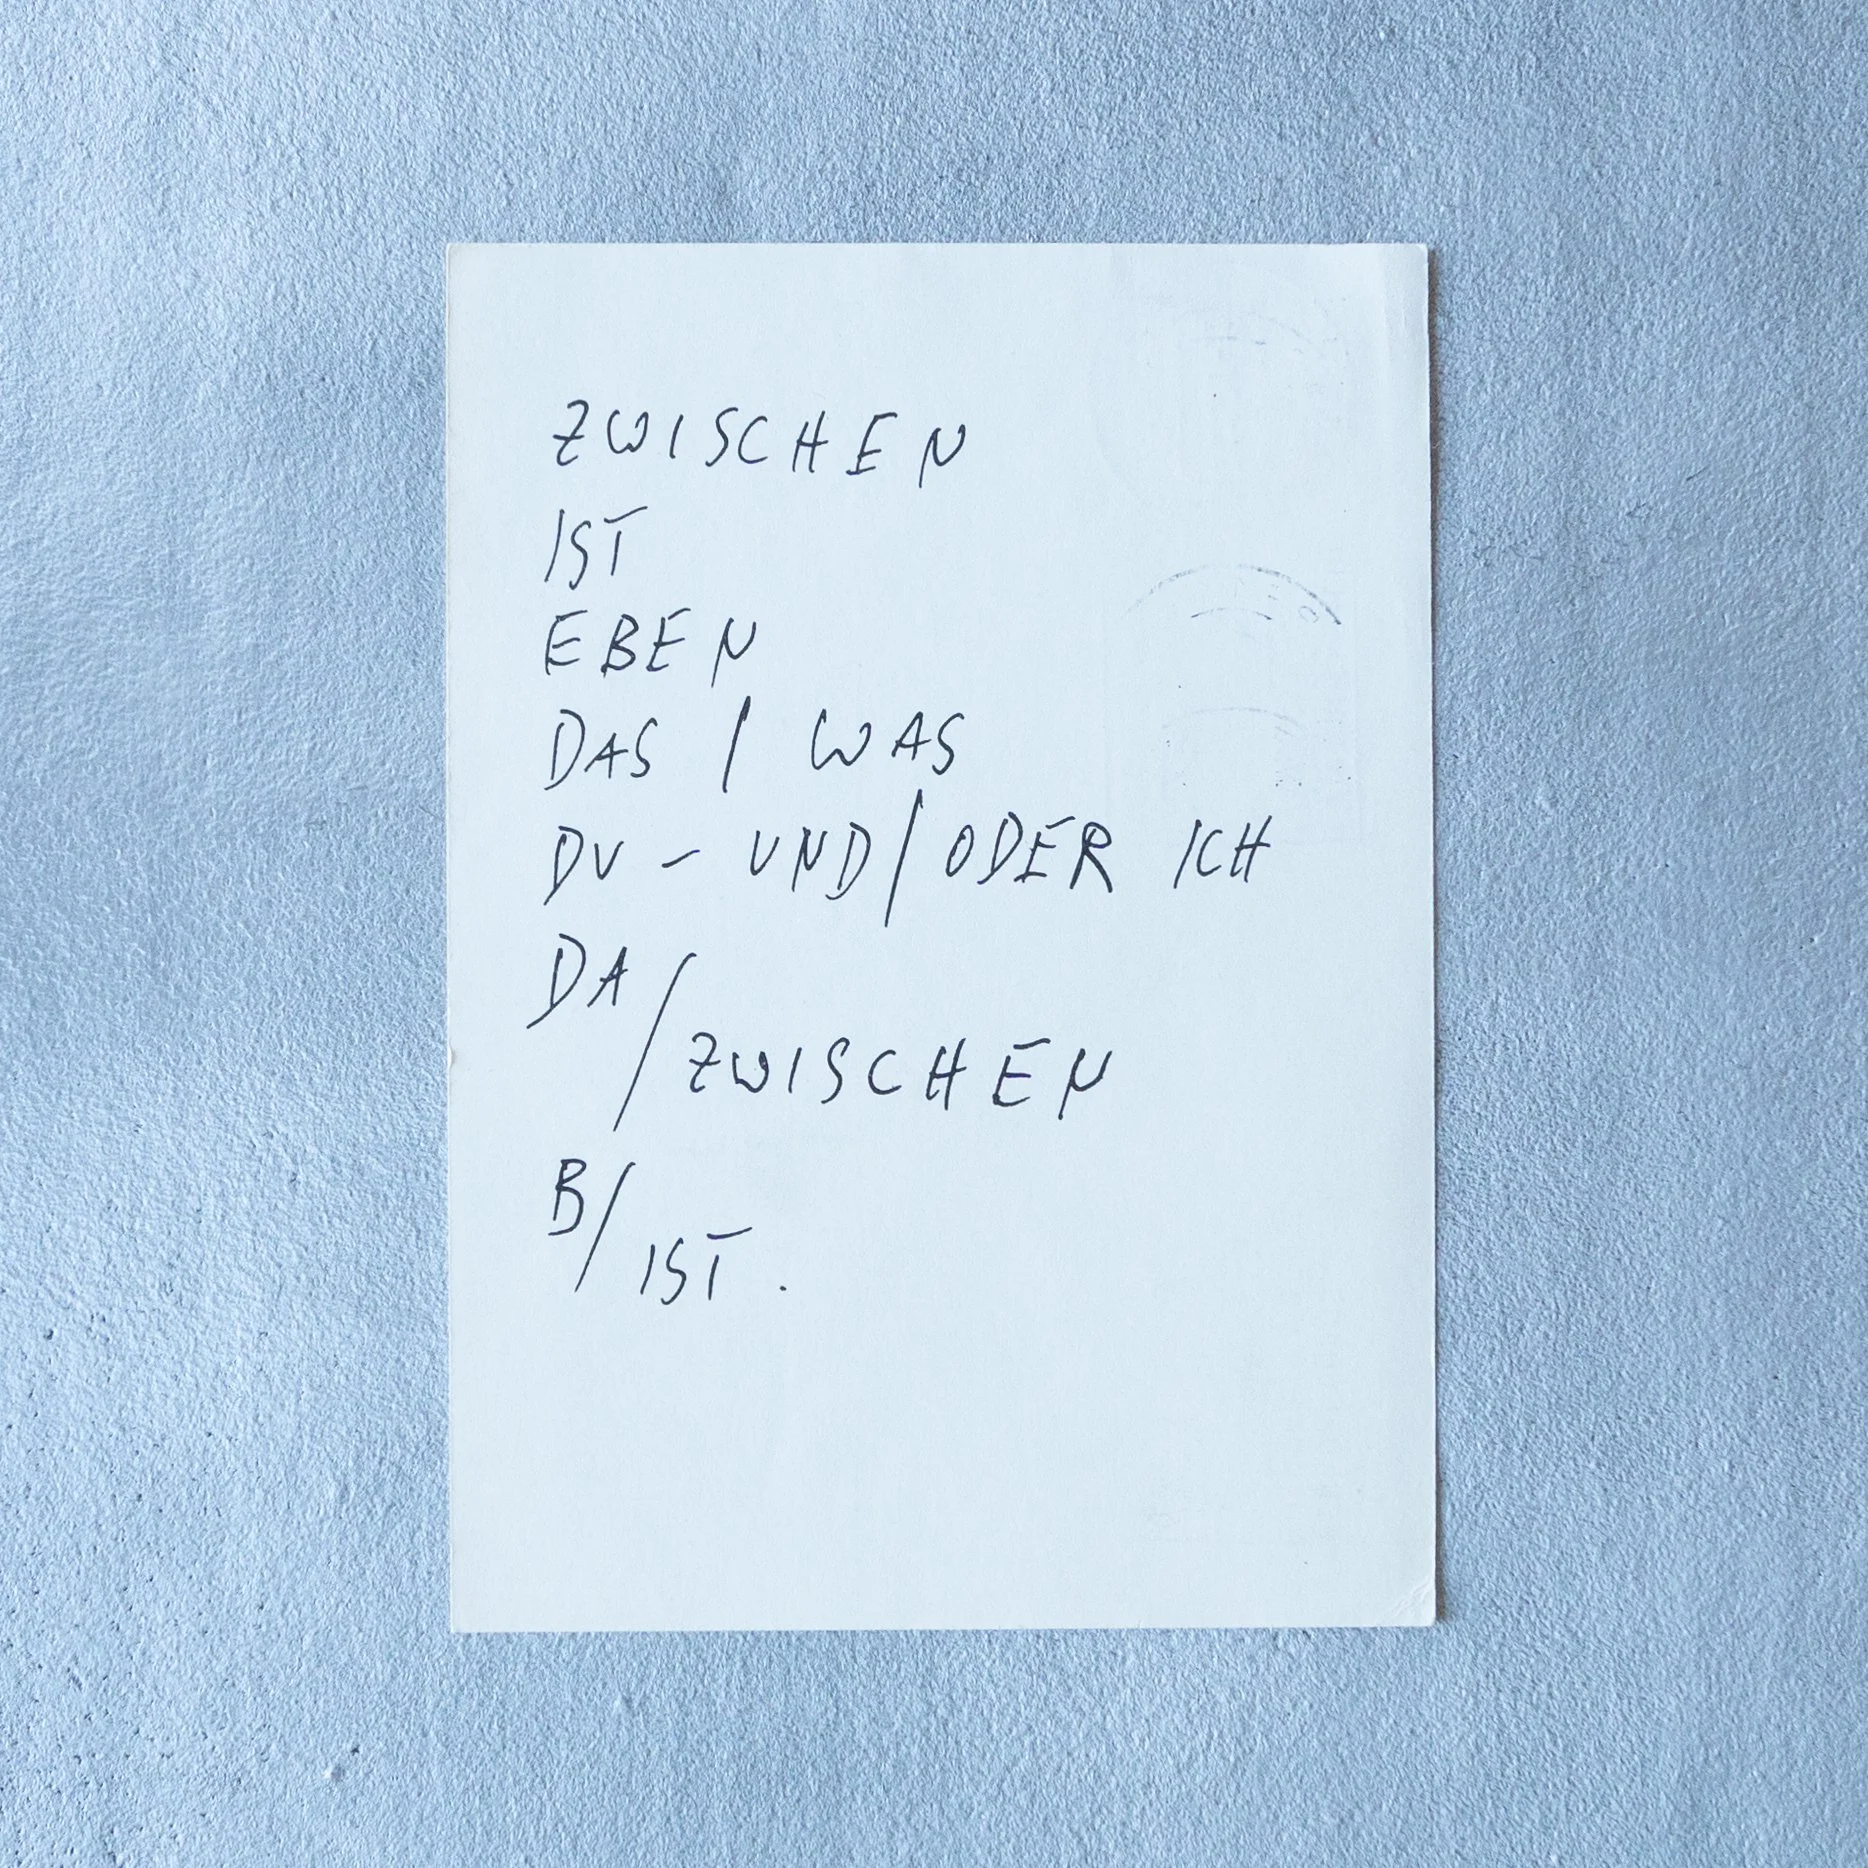 ZWISCHEN
IST
EBEN
DAS / WAS
DU - UND/ODER ICH
DA
/ZWISCHEN
B/
IST.